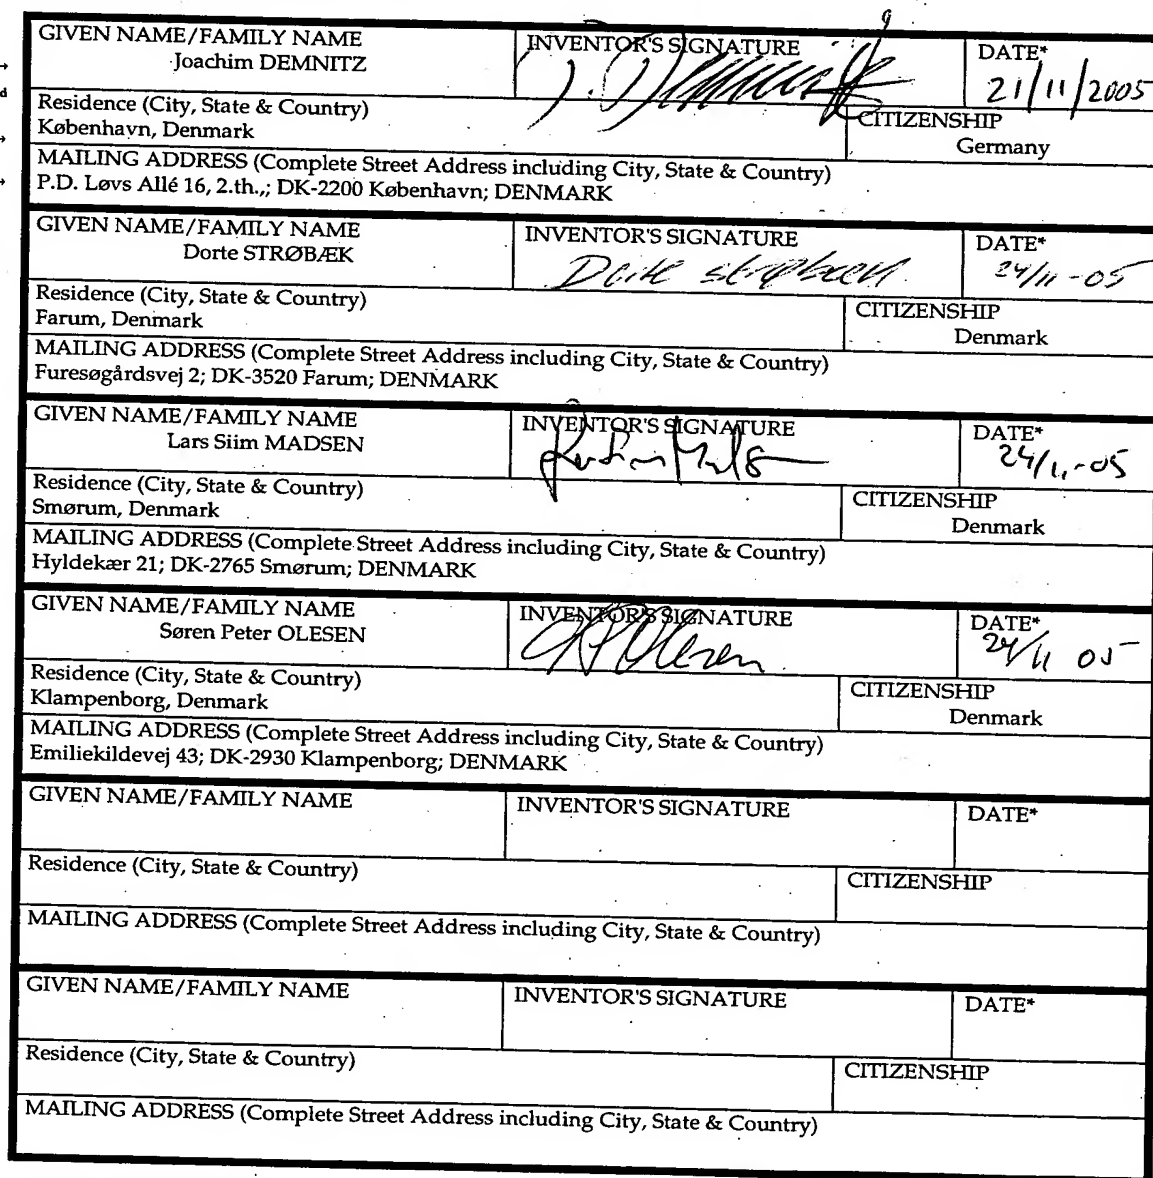 GIVEN NAME/FAMILY NAME INVENTOR'S SIGNATURE DATE*
Joachim DEMNITZ 21/11/2005
Residence (City, State & Country) CITIZENSHIP
København, Denmark Germany
MAILING ADDRESS (Complete Street Address including City, State & Country)
P.D. Løvs Allé 16, 2.th.,; DK-2200 København; DENMARK
GIVEN NAME/FAMILY NAME INVENTOR'S SIGNATURE DATE*
Dorte STRØBÆK Dorte Strøbæk 24/11-05
Residence (City, State & Country) CITIZENSHIP
Farum, Denmark Denmark
MAILING ADDRESS (Complete Street Address including City, State & Country)
Furesøgårdsvej 2; DK-3520 Farum; DENMARK
GIVEN NAME/FAMILY NAME INVENTOR'S SIGNATURE DATE*
Lars Siim MADSEN 24/11-05
Residence (City, State & Country) CITIZENSHIP
Smørum, Denmark Denmark
MAILING ADDRESS (Complete Street Address including City, State & Country)
Hyldekær 21; DK-2765 Smørum; DENMARK
GIVEN NAME/FAMILY NAME INVENTOR'S SIGNATURE DATE*
Søren Peter OLESEN 24/11 05
Residence (City, State & Country) CITIZENSHIP
Klampenborg, Denmark Denmark
MAILING ADDRESS (Complete Street Address including City, State & Country)
Emiliekildevej 43; DK-2930 Klampenborg; DENMARK
GIVEN NAME/FAMILY NAME INVENTOR'S SIGNATURE DATE*
Residence (City, State & Country) CITIZENSHIP
MAILING ADDRESS (Complete Street Address including City, State & Country)
GIVEN NAME/FAMILY NAME INVENTOR'S SIGNATURE DATE*
Residence (City, State & Country) CITIZENSHIP
MAILING ADDRESS (Complete Street Address including City, State & Country)